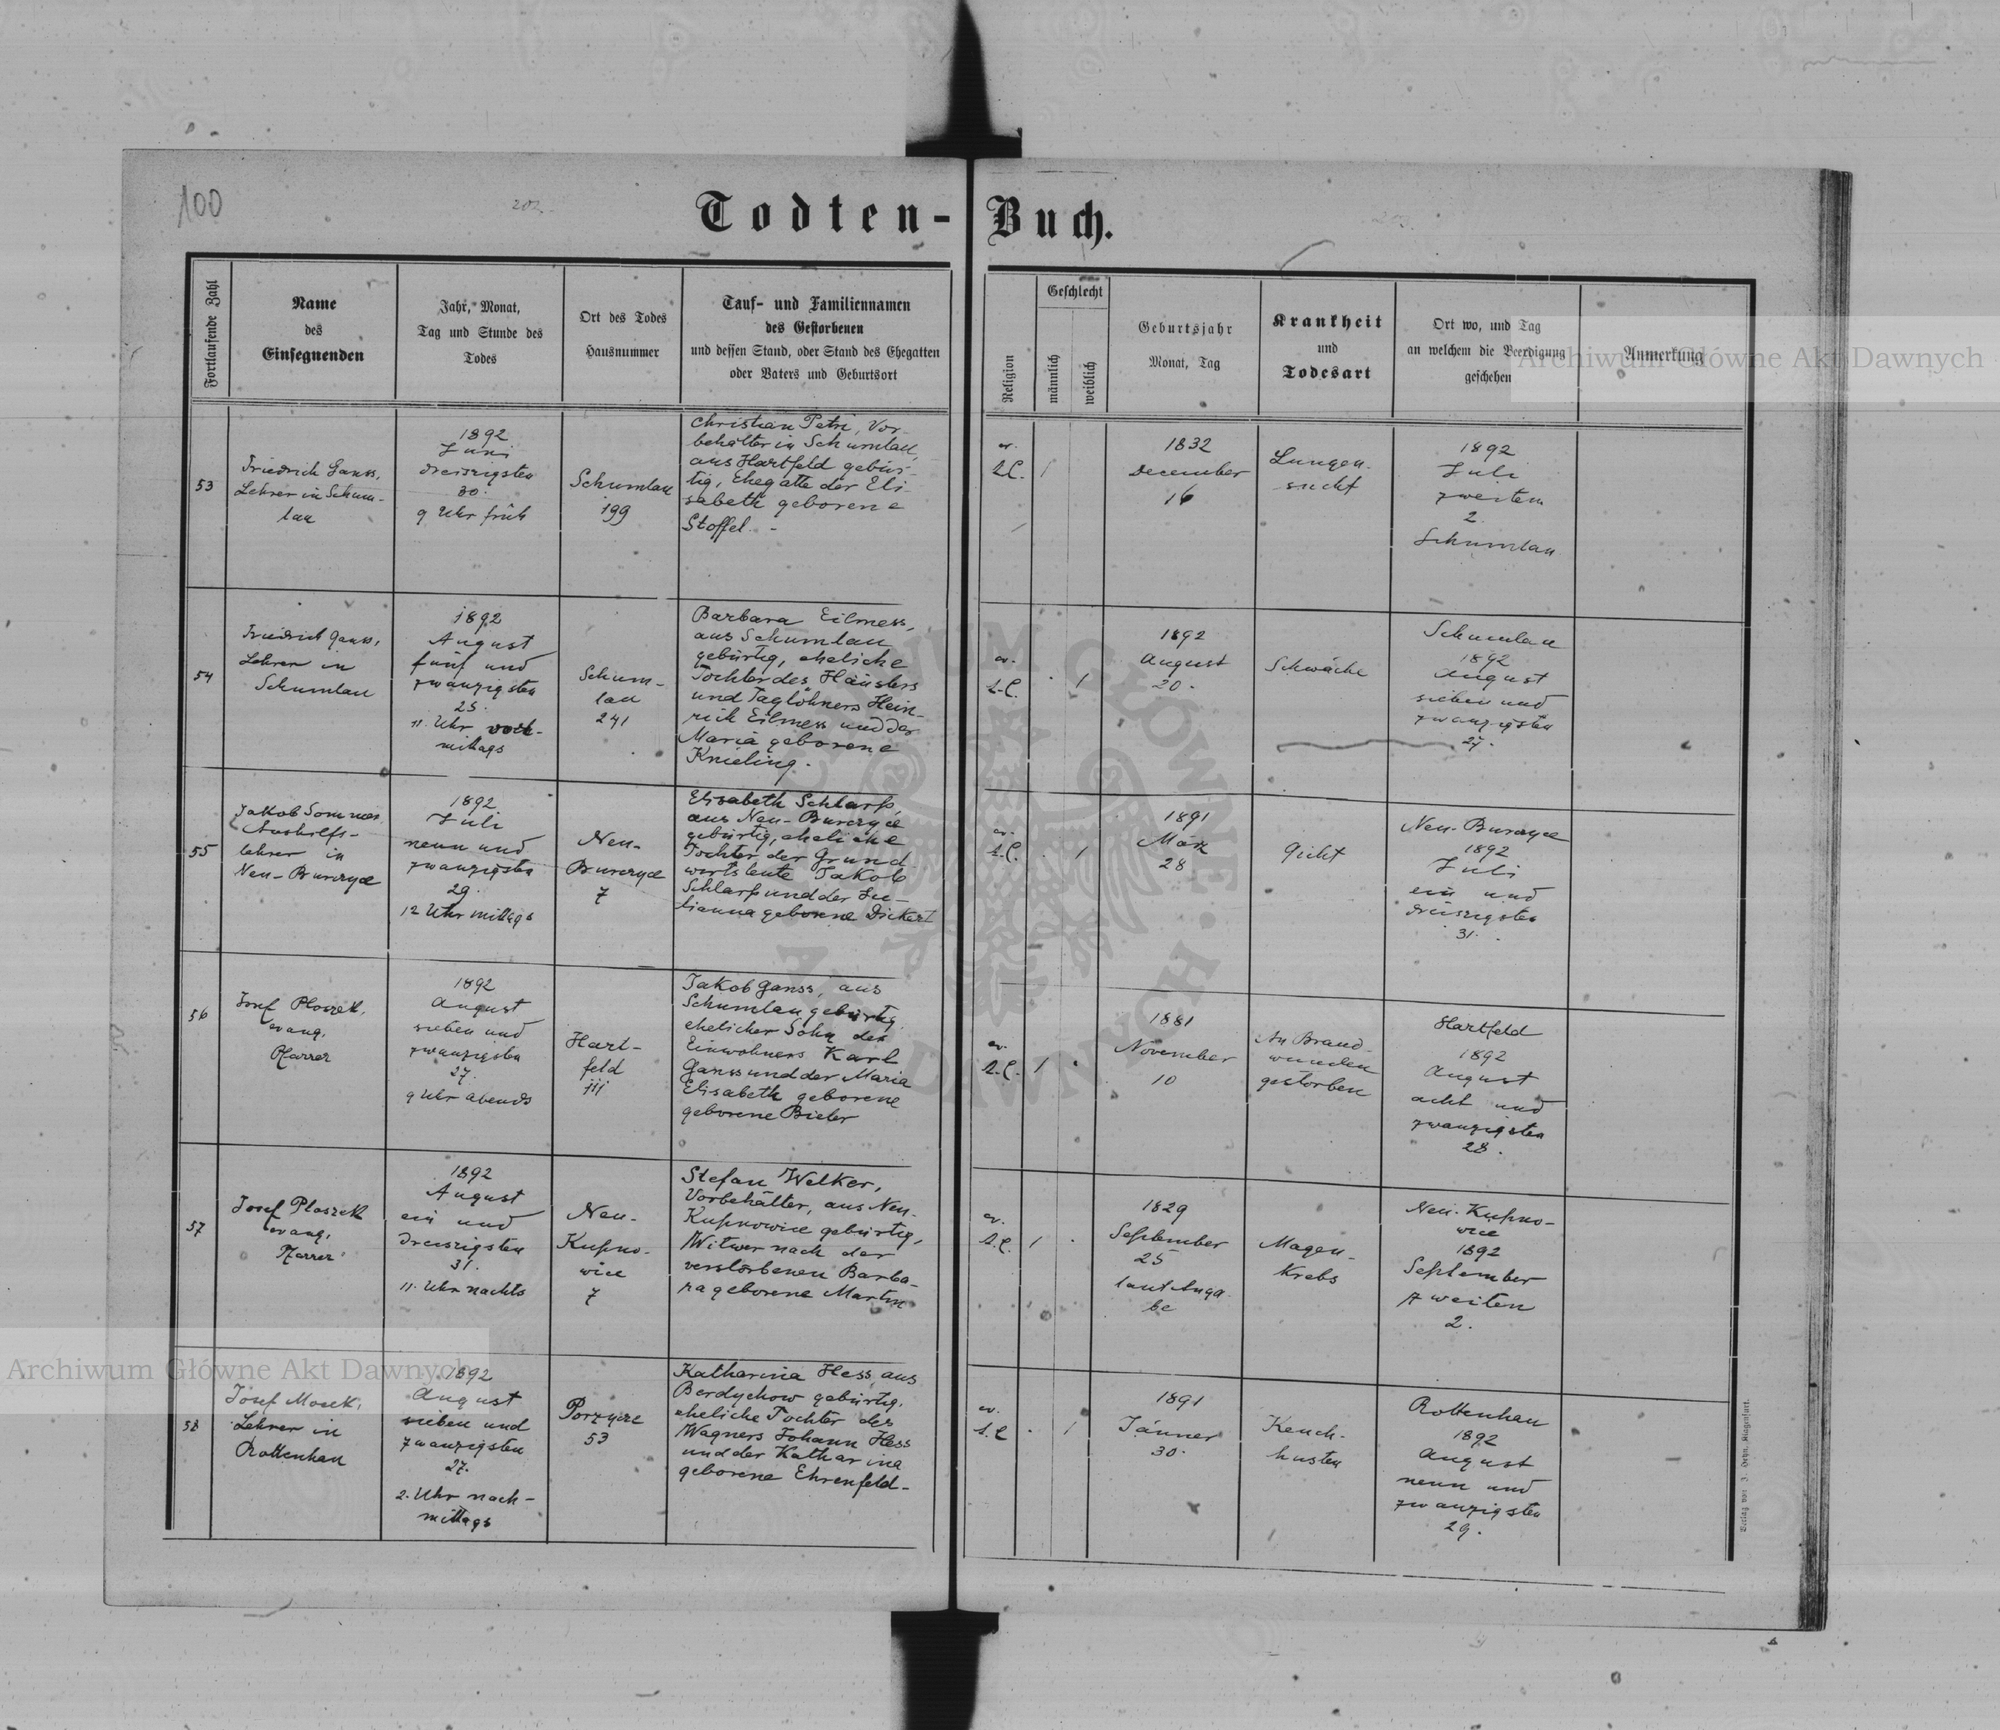 100
202.
203
Todten-Buch.
Fortlaufende Zahl
Name
des
Einsegnenden
Jahr, Monat,
Tag und Stunde des
Todes
Ort des Todes
Hausnummer
Tauf- und Familiennamen
des Gestorbenen
und dessen Stand, oder Stand des Ehegatten
oder Vaters und Geburtsort
Religion
Geschlecht
männlich
weiblich
Geburtsjahr
Monat, Tag
Krankheit
und
Todesart
Ort wo, und Tag
an welchem die Beerdigung
geschehen
Anmerkung
Archiwum Główne Akt Dawnych
53
Friedrich Ganss,
Lehrer in Schum-
lau
1892
Juni
dreiszigsten
30.
9 Uhr früh
Schumlau
199
Christian Petri, Vor-
behälter in Schumlau,
aus Hartfeld gebür-
tig, Ehegatte der Eli-
sabeth geborene
Stoffel. -
ev.
A.C.
/
1832
December
16
Lungen-
sucht
1892
Juli
zweiten
2.
Schumlau
54
Friedrich Ganss,
Lehrer in
Schumlau
1892
August
fünf und
zwanzigsten
25.
11. Uhr vor-
mittags
Schum-
lau
241
Barbara Eilmess,
aus Schumlau
gebürtig, eheliche
Tochter des Häuslers
und Taglöhners Hein-
rich Eilmess und der
Maria geborene
Knieling.
ev.
A.C.
. /
1892
August
20.
Schwäche
Schumlau
1892
August
sieben und
zwanzigsten
27.
55
Jakob Sommer
Aushilfs-
lehrer in
Neu-Burczyce
1892
Juli
neun und
zwanzigsten
29.
12 Uhr mittags
Neu-
Burczyce
7
Elisabeth Schlarp,
aus Neu-Burczyce
gebürtig, eheliche
Tochter der Grund-
wirtsleute Jakob
Schlarp und der Ju-
lianna geborene Dickert
ev.
A.C.
. /
1891
März
28
Gicht
Neu-Burczyce
1892
Juli
ein und
dreiszigsten
31.
56
Josef Ploszek,
evang.
Pfarrer
1892
August
sieben und
zwanzigsten
27.
9 Uhr abends
Hart-
feld
111
Jakob Ganss, aus
Schumlau gebürtig
ehelicher Sohn des
Einwohners Karl
Ganss und der Maria
Elisabeth geborene
geborene Bieler
ev.
A.C.
/ .
1881
November
10
An Brand-
wunden
gestorben
Hartfeld
1892
August
acht und
zwanzigsten
28.
57
Josef Ploszek
evang.
Pfarrer
1892
August
ein und
dreiszigsten
31.
11. Uhr nachts
Neu-
Kupno-
wice
7
Stefan Welker,
Vorbehälter, aus Neu-
Kupnowice gebürtig,
Witwer nach der
verstorbenen Barba-
ra geborene Martin
ev.
A.C.
/ .
1829
September
25
laut Anga-
be
Magen-
Krebs
Neu-Kupno-
wice
1892
September
zweiten
2.
58
Josef Mosek,
Lehrer in
Rottenhan
1892
August
sieben und
zwanzigsten
27.
2. Uhr nach-
mittags
Porzycze
53
Katharina Hess, aus
Berdychow gebürtig,
eheliche Tochter des
Wagners Johann Hess
und der Katharina
geborene Ehrenfeld-
ev.
A.C
. /
1891
Jänner
30.
Keuch-
husten
Rottenhan
1892
August
neun und
zwanzigsten
29.
Archiwum Główne Akt Dawnych
Verlag von J. Heyn, Klagenfurt.